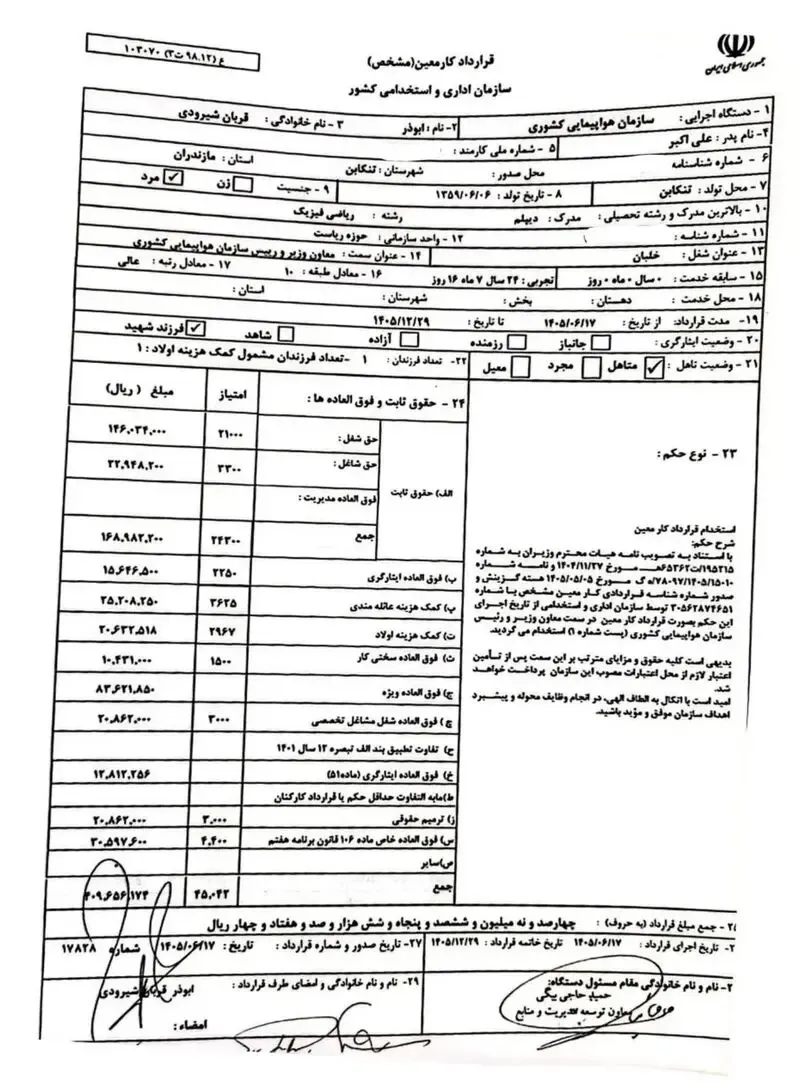 ع (۹۸.۱۲ ت۳) ۱۰۳۰۷۰
قرارداد کار معین(مشخص)
سازمان اداری و استخدامی کشور
جمهوری اسلامی ایران
۱ - دستگاه اجرایی : سازمان هواپیمایی کشوری
۲- نام : ابوذر
۳ - نام خانوادگی : قربان شیرودی
۴- نام پدر : علی اکبر
۵ - شماره ملی کارمند :
۶ - شماره شناسنامه
محل صدور : شهرستان : تنکابن استان : مازندران
۷ - محل تولد : تنکابن
۸ - تاریخ تولد : ۱۳۵۹/۰۶/۰۶
۹ - جنسیت زن مرد
۱۰ - بالاترین مدرک و رشته تحصیلی : مدرک : دیپلم رشته : ریاضی فیزیک
۱۱ - شماره شناسه :
۱۲ - واحد سازمانی : حوزه ریاست
۱۳ - عنوان شغل : خلبان
۱۴ - عنوان سمت : معاون وزیر و رییس سازمان هواپیمایی کشوری
۱۵ - سابقه خدمت : ۰ سال ۰ ماه ۰ روز
تجربی : ۲۴ سال ۷ ماه ۱۶ روز
۱۶ - معادل طبقه : ۱۰
۱۷ - معادل رتبه : عالی
۱۸ - محل خدمت : دهستان : بخش : شهرستان : استان :
۱۹- مدت قرارداد: از تاریخ : ۱۴۰۵/۰۶/۱۷ تا تاریخ : ۱۴۰۵/۱۲/۲۹
۲۰ - وضعیت ایثارگری : جانباز رزمنده آزاده شاهد فرزند شهید
۲۱ - وضعیت تاهل : متاهل مجرد معیل
۲۲- تعداد فرزندان : ۱ -تعداد فرزندان مشمول کمک هزینه اولاد : ۱
۲۳ - نوع حکم :
استخدام قرارداد کار معین
شرح حکم:
با استناد به تصویب نامه هیات محترم وزیران به شماره
۱۹۵۳۱۵/ت۶۵۳۶۲هـ مورخ ۱۴۰۴/۱۱/۲۷ و نامه شماره
۷۸۰۹۷/۱۴۰۵/۱۵۰۱۰/ه گ مورخ ۱۴۰۵/۰۵/۰۵ هسته گزینش و
صدور شماره شناسه قراردادی کار معین مشخص با شماره
۳۰۵۶۲۸۷۴۶۵۱ توسط سازمان اداری و استخدامی از تاریخ اجرای
این حکم بصورت قرارداد کار معین در سمت معاون وزیر و رئیس
سازمان هواپیمایی کشوری (پست شماره ۱) استخدام می گردید.
بدیهی است کلیه حقوق و مزایای مترتب بر این سمت پس از تأمین
اعتبار لازم از محل اعتبارات مصوب این سازمان پرداخت خواهد
شد.
امید است با اتکال به الطاف الهی، در انجام وظایف محوله و پیشبرد
اهداف سازمان موفق و مؤید باشید.
۲۴ - حقوق ثابت و فوق العاده ها : امتیاز مبلغ (ریال)
الف) حقوق ثابت
حق شغل : ۲۱۰۰۰ ۱۴۶,۰۳۴,۰۰۰
حق شاغل : ۳۳۰۰ ۲۲,۹۴۸,۲۰۰
فوق العاده مدیریت :
جمع ۲۴۳۰۰ ۱۶۸,۹۸۲,۲۰۰
ب) فوق العاده ایثارگری ۲۲۵۰ ۱۵,۶۴۶,۵۰۰
پ) کمک هزینه عائله مندی ۳۶۲۵ ۲۵,۲۰۸,۲۵۰
ت) کمک هزینه اولاد ۲۹۶۷ ۲۰,۶۳۲,۵۱۸
ث) فوق العاده سختی کار ۱۵۰۰ ۱۰,۴۳۱,۰۰۰
ج) فوق العاده ویژه ۸۳,۶۲۱,۸۵۰
چ) فوق العاده شغل مشاغل تخصصی ۳۰۰۰ ۲۰,۸۶۲,۰۰۰
ح) تفاوت تطبیق بند الف تبصره ۱۲ سال ۱۴۰۱
خ) فوق العاده ایثارگری (ماده۵۱) ۱۲,۸۱۲,۲۵۶
ط)مابه التفاوت حداقل حکم یا قرارداد کارکنان
ز) ترمیم حقوقی ۳,۰۰۰ ۲۰,۸۶۲,۰۰۰
س) فوق العاده خاص ماده ۱۰۶ قانون برنامه هفتم ۴,۴۰۰ ۳۰,۵۹۷,۶۰۰
ص)سایر
جمع ۴۵,۰۴۲ ۴۰۹,۶۵۶,۱۷۴
۲۵ - جمع مبلغ قرارداد (به حروف) : چهارصد و نه میلیون و ششصد و پنجاه و شش هزار و صد و هفتاد و چهار ریال
تاریخ اجرای قرارداد : ۱۴۰۵/۰۶/۱۷ تاریخ خاتمه قرارداد : ۱۴۰۵/۱۲/۲۹
۲۷- تاریخ صدور و شماره قرارداد : تاریخ : ۱۴۰۵/۰۶/۱۷ شماره ۱۷۸۲۸
نام و نام خانوادگی مقام مسئول دستگاه:
حمید حاجی بیگی
معاون توسعه مدیریت و منابع
۲۹- نام و نام خانوادگی و امضای طرف قرارداد : ابوذر قربان شیرودی
امضاء :